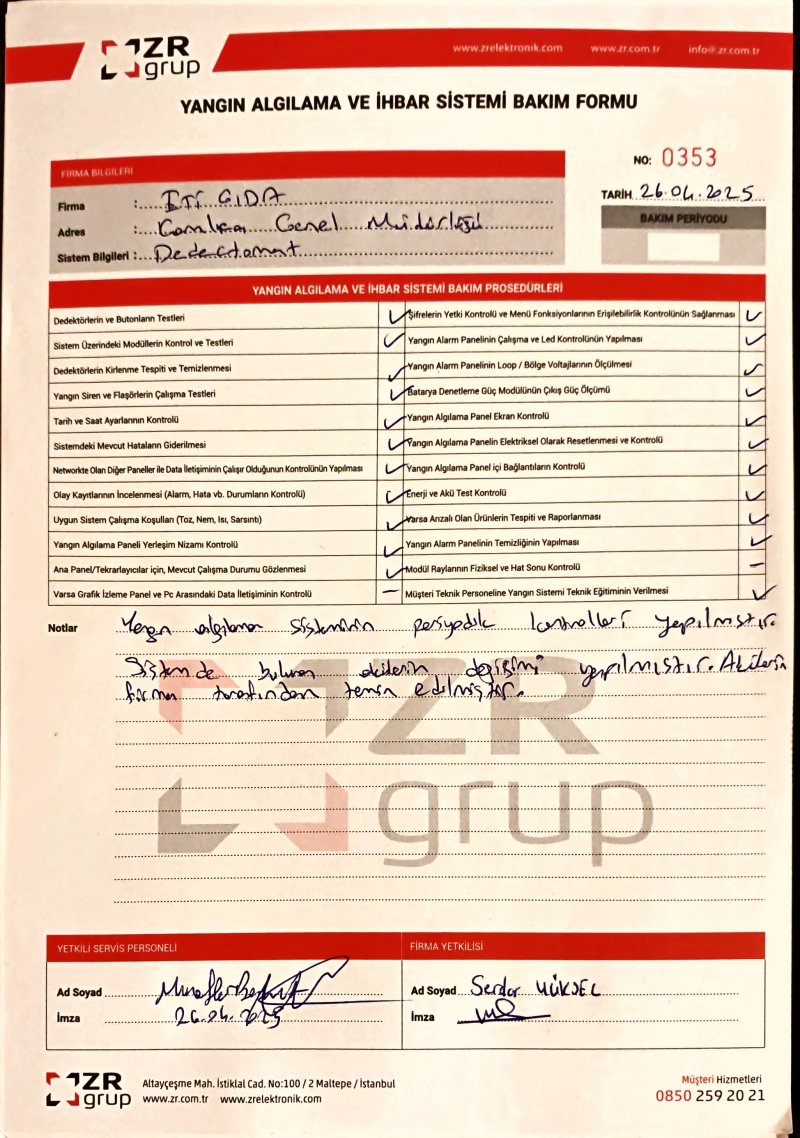 ZR grup
www.zrelektronik.com www.zr.com.tr info@.zr.com.tr
YANGIN ALGILAMA VE İHBAR SİSTEMİ BAKIM FORMU
NO: 0353
TARİH 26.04.2025
BAKIM PERİYODU
FİRMA BİLGİLERİ
Firma : ETİ GIDA
Adres : Çamlıca Genel Müdürlüğü
Sistem Bilgileri : Dedectomat
YANGIN ALGILAMA VE İHBAR SİSTEMİ BAKIM PROSEDÜRLERİ
Dedektörlerin ve Butonların Testleri ✓ Şifrelerin Yetki Kontrolü ve Menü Fonksiyonlarının Erişilebilirlik Kontrolünün Sağlanması ✓
Sistem Üzerindeki Modüllerin Kontrol ve Testleri ✓ Yangın Alarm Panelinin Çalışma ve Led Kontrolünün Yapılması ✓
Dedektörlerin Kirlenme Tespiti ve Temizlenmesi ✓ Yangın Alarm Panelinin Loop / Bölge Voltajlarının Ölçülmesi ✓
Yangın Siren ve Flaşörlerin Çalışma Testleri ✓ Batarya Denetleme Güç Modülünün Çıkış Güç Ölçümü ✓
Tarih ve Saat Ayarlarının Kontrolü ✓ Yangın Algılama Panel Ekran Kontrolü ✓
Sistemdeki Mevcut Hataların Giderilmesi ✓ Yangın Algılama Panelin Elektriksel Olarak Resetlenmesi ve Kontrolü ✓
Networkte Olan Diğer Paneller ile Data İletişiminin Çalışır Olduğunun Kontrolünün Yapılması ✓ Yangın Algılama Panel içi Bağlantıların Kontrolü ✓
Olay Kayıtlarının İncelenmesi (Alarm, Hata vb. Durumların Kontrolü) ✓ Enerji ve Akü Test Kontrolü ✓
Uygun Sistem Çalışma Koşulları (Toz, Nem, Isı, Sarsıntı) ✓ Varsa Arızalı Olan Ürünlerin Tespiti ve Raporlanması ✓
Yangın Algılama Paneli Yerleşim Nizamı Kontrolü ✓ Yangın Alarm Panelinin Temizliğinin Yapılması ✓
Ana Panel/Tekrarlayıcılar için, Mevcut Çalışma Durumu Gözlenmesi ✓ Modül Raylarının Fiziksel ve Hat Sonu Kontrolü –
Varsa Grafik İzleme Panel ve Pc Arasındaki Data İletişiminin Kontrolü – Müşteri Teknik Personeline Yangın Sistemi Teknik Eğitiminin Verilmesi ✓
Notlar Yangın algılama sisteminin periyodik kontrolleri yapılmıştır.
Sistemde bulunan akülerin değişimi yapılmıştır. Aküler
firma tarafından temin edilmiştir.
ZR grup
YETKİLİ SERVİS PERSONELİ
Ad Soyad
İmza 26.04.2025
FİRMA YETKİLİSİ
Ad Soyad Serdar YÜKSEL
İmza
ZR grup
Altayçeşme Mah. İstiklal Cad. No:100 / 2 Maltepe / İstanbul
www.zr.com.tr www.zrelektronik.com
Müşteri Hizmetleri
0850 259 20 21